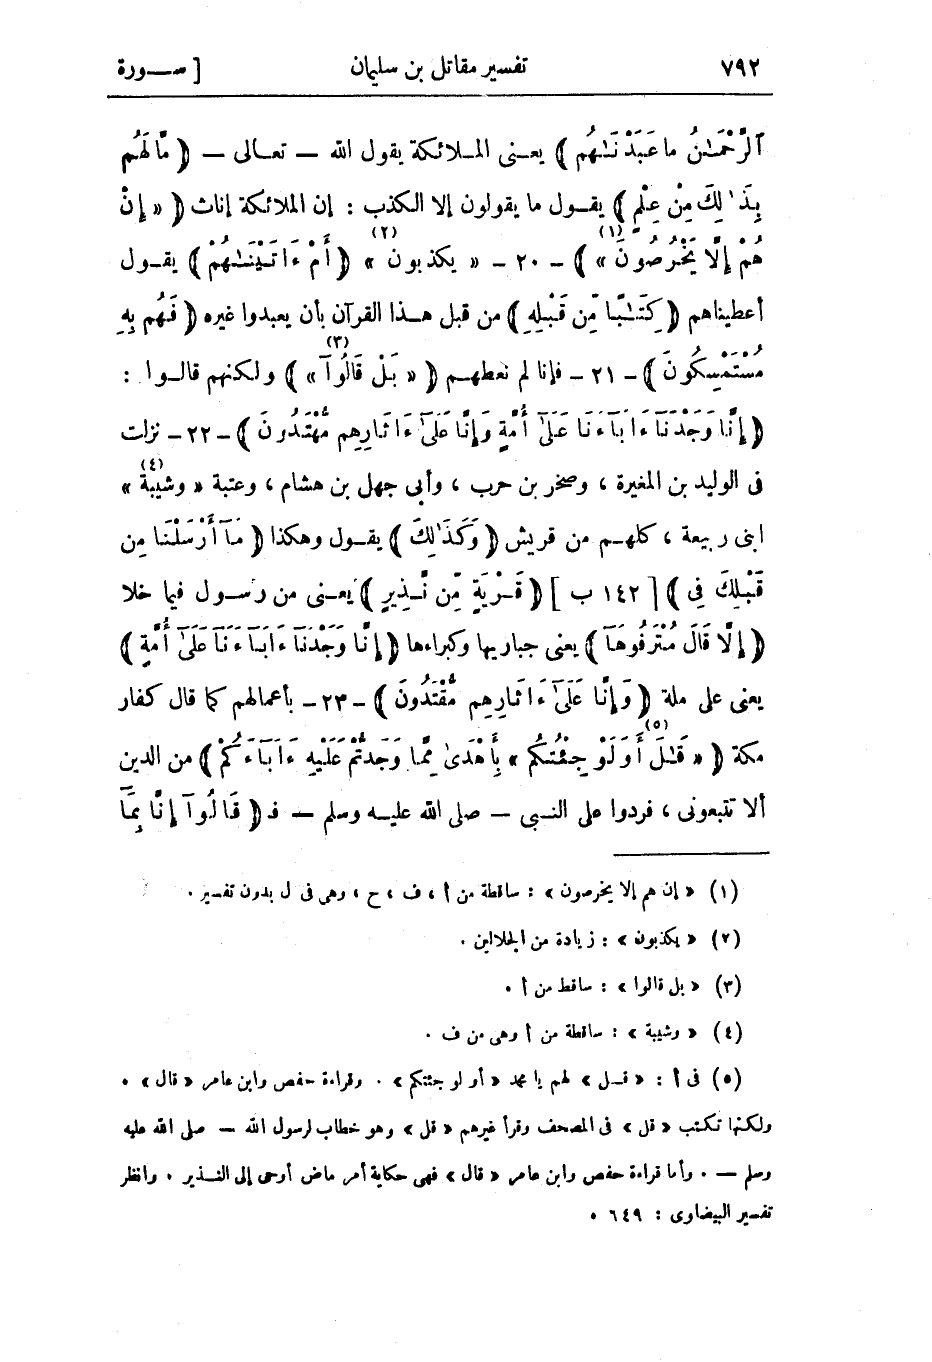 ٧٩٢ تفسير مقاتل بن سليمان [ ســورة
ٱلرَّحْمَـٰنُ ما عَبَدْنَـٰهُم ﴾ يعـنى المـلائكة يقول الله — تعـالى — ﴿ مَّا لَهُم
بِذَٰلِكَ مِنْ عِلْمٍ ﴾ يقـول ما يقولون إلا الكذب : إن الملائكة إناث ﴿ « إِنْ
هُمْ إِلَّا يَخْرُصُونَ » (١) ﴾ ـ ٢٠ ـ « يكذبون » (٢) ﴿ أَمْ ءَاتَيْنَـٰهُمْ ﴾ يقـول
أعطيناهم ﴿ كِتَـٰبًا مِّن قَبْلِهِ ﴾ من قبل هـذا القرآن بأن يعبدوا غيره ﴿ فَهُم بِهِ
مُسْتَمْسِكُونَ ﴾ ـ ٢١ ـ فإنا لم نعطهـم ﴿ « بَلْ قَالُوٓا » (٣) ﴾ ولكنهم قالـوا :
﴿ إِنَّا وَجَدْنَآ ءَابَآءَنَا عَلَىٰٓ أُمَّةٍ وَإِنَّا عَلَىٰٓ ءَاثَـٰرِهِم مُّهْتَدُونَ ﴾ ـ ٢٢ ـ نزلت
فى الوليد بن المغيرة ، وصخر بن حرب ، وأبى جهل بن هشام ، وعتبة « وشيبة » (٤)
ابنى ربيعة ، كلهـم من قريش ﴿ وَكَذَٰلِكَ ﴾ يقـول وهكذا ﴿ مَآ أَرْسَلْنَا مِن
قَبْلِكَ فِى ﴾ [ ١٤٢ ب ] ﴿ قَـرْيَةٍ مِّن نَّـذِيرٍ ﴾ يعـنى من رسـول فيما خلا
﴿ إِلَّا قَالَ مُتْرَفُوهَآ ﴾ يعنى جباريها وكبراءها ﴿ إِنَّا وَجَدْنَآ ءَابَآءَنَا عَلَىٰٓ أُمَّةٍ ﴾
يعنى على ملة ﴿ وَإِنَّا عَلَىٰٓ ءَاثَـٰرِهِم مُّقْتَدُونَ ﴾ ـ ٢٣ ـ بأعمالهم كما قال كفار
مكة ﴿ « قَـٰلَ أَوَلَوْ جِئْتُكُم » (٥) بِأَهْدَىٰ مِمَّا وَجَدتُّمْ عَلَيْهِ ءَابَآءَكُمْ ﴾ من الدين
ألا تتبعونى ، فردوا على النـبى — صلى الله عليـه وسلم — فـ ﴿ قَالُوٓا إِنَّا بِمَآ
(١) « إن هم إلا يخرصون » : ساقطة من أ ، ف ، ح ، وهى فى ل بدون تفسير .
(٢) « يكذبون » : زيادة من الجلالين .
(٣) « بل قالوا » : ساقط من أ .
(٤) « وشيبة » : ساقطة من أ وهى من ف .
(٥) فى أ : « قـل » لهم يا محمد « أو لو جئتكم » . وقراءة حفص وابن عامر « قال » .
ولكنها تكتب « قل » فى المصحف وقرأ غيرهم « قل » وهو خطاب لرسول الله — صلى الله عليه
وسلم — . وأما قراءة حفص وابن عامر « قال » فهى حكاية أمر ماض أوحى إلى النـذير . وانظر
تفسير البيضاوى : ٦٤٩ .